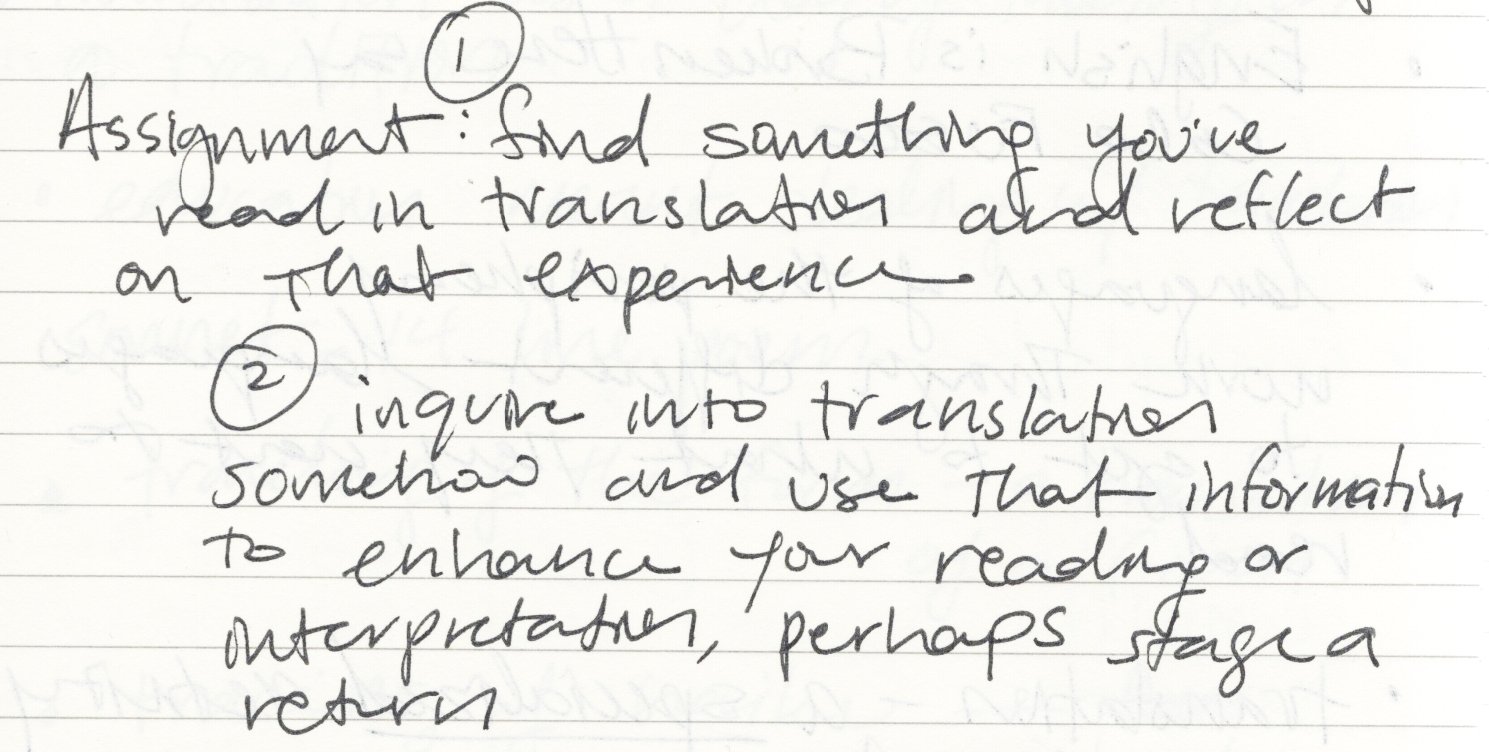 ①
Assignment: find something you've
read in translation and reflect
on that experience.
② inquire into translation
somehow and use that information
to enhance your reading or
interpretation, perhaps stage a
return